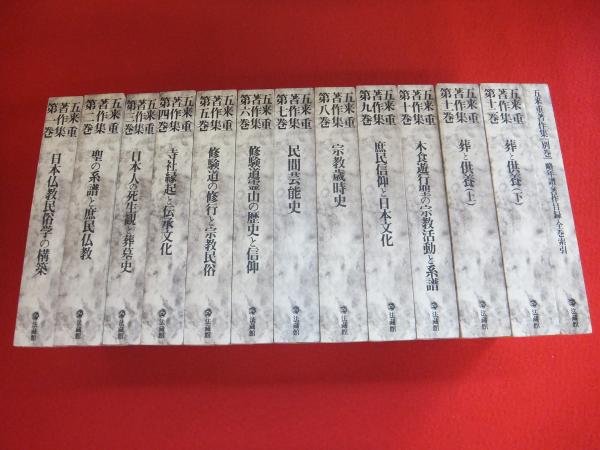 五来重
著作集
第一巻
日本仏教民俗学の構築
法藏館
五来重
著作集
第二巻
聖の系譜と庶民仏教
法藏館
五来重
著作集
第三巻
日本人の死生観と葬墓史
法藏館
五来重
著作集
第四巻
寺社縁起と伝承文化
法藏館
五来重
著作集
第五巻
修験道の修行と宗教民俗
法藏館
五来重
著作集
第六巻
修験道霊山の歴史と信仰
法藏館
五来重
著作集
第七巻
民間芸能史
法藏館
五来重
著作集
第八巻
宗教歳時史
法藏館
五来重
著作集
第九巻
庶民信仰と日本文化
法藏館
五来重
著作集
第十巻
木食遊行聖の宗教活動と系譜
法藏館
五来重
著作集
第十一巻
葬と供養(上)
法藏館
五来重
著作集
第十二巻
葬と供養(下)
法藏館
五来重著作集〈別巻〉 略年譜・著作目録・全巻索引
法藏館